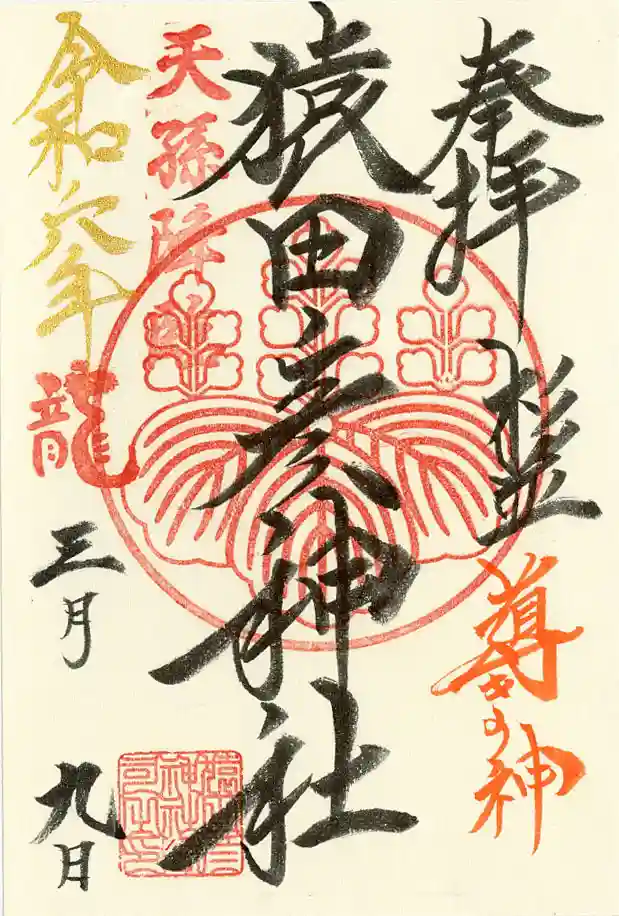 奉拝
導きの神
猿田彦神社
天孫降臨
令和六年
龍
三月
九日